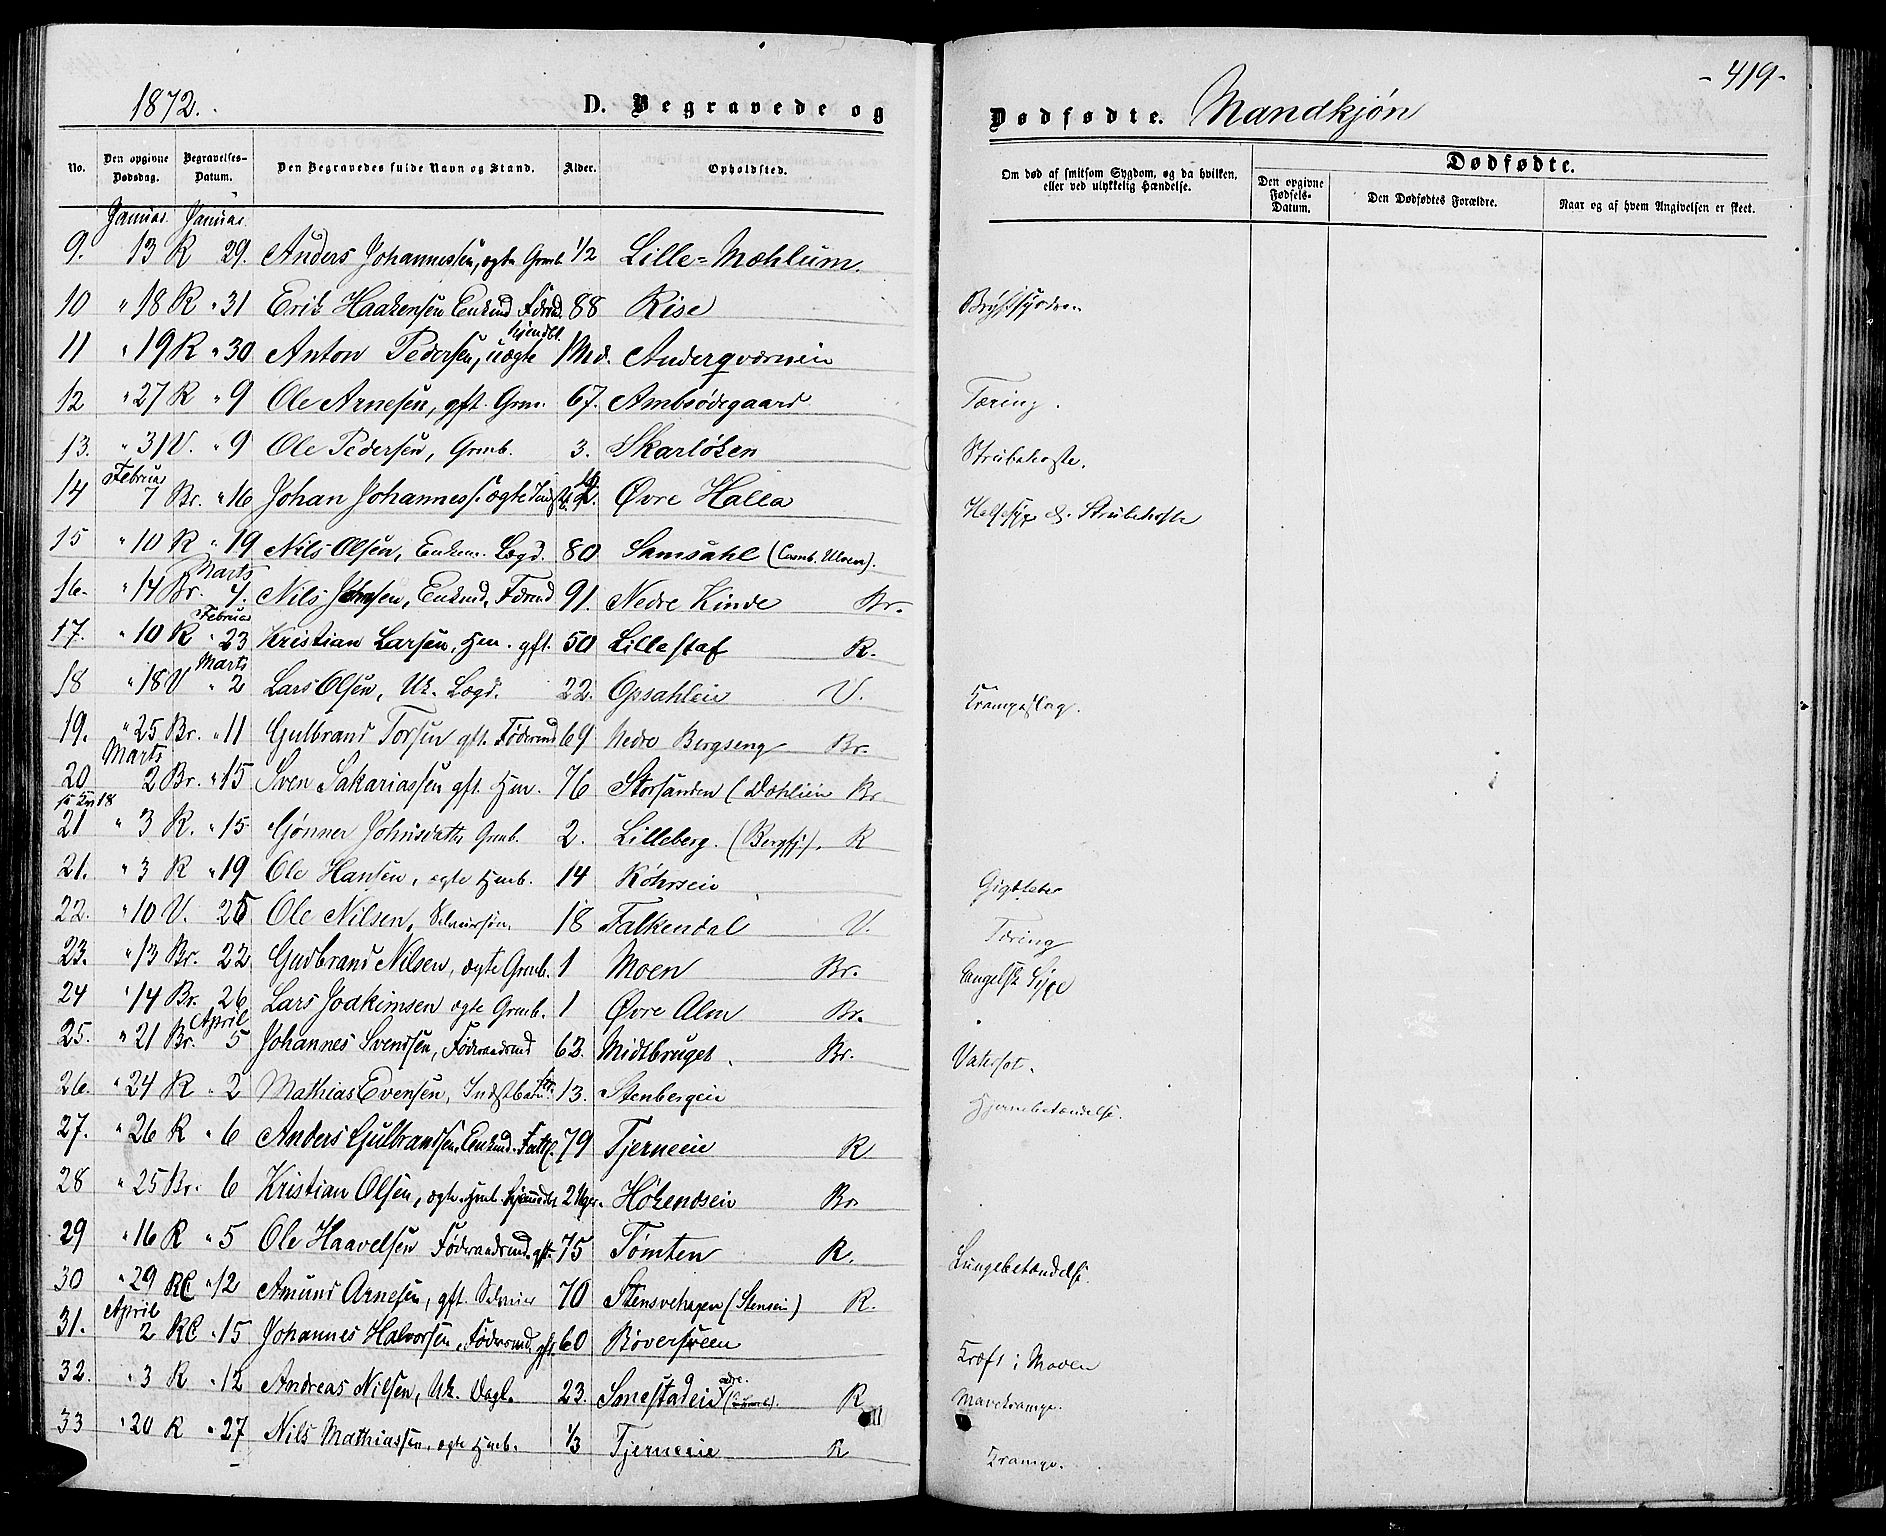 -419-
1872. D. Begravede og Dødfødte. Mandkjøn
No. Den opgivne Dødsdag. Begravelses-Datum. Den Begravedes fulde Navn og Stand. Alder. Opholdsted. Om død af smitsom Sygdom, og da hvilken, eller ved ulykkelig Hændelse. Dødfødte.
Den opgivne Fødsels-Datum. Den Dødfødtes Forældre. Naar og af hvem Angivelsen er skeet.
Januar Januar
9. 13 R 29. Anders Johannessen, ægte Grmb. 1/2 Lille=Mæhlum.
10 " 18 R " 31 Erik Haakensen Enkmd Fdrmd. 88 Rise Brystsygdom
11 " 19 R " 30 Anton Pedersen, uægte hjemdbt. 1 Md. Anderqværnein
12 " 27 R " 9 Ole Arnesen, gft. Grm. 67. Ambsødegaard Tæring.
13. " 31 V. " 9 Ole Pedersen, Grmb. 3. Skarløken Strubehoste.
Februar
14 7 Br. " 16 Johan Johanness. ægte Øvre Halla Halssyge & Strubehoste
15 " 10 R " 19 Nils Olsen, Enkem. Lægd. 80 Samsahl
Marts
16. " 14 Br. 4. Nils Johnsen, Enkmd. Fdrmd 91. Nedre Kinde Br.
Februar
17. " 10 R " 23 Kristian Larsen, Hm. gft. 50 Lillestaf R.
Marts
18 " 18 V " 2 Lars Olsen, Uk. Lægd. 22. Opsahleie V. Krampeslag.
19. " 25 Br. " 11 Gulbrand Torsen gft. Fødermd 69 Nedre Bergseng Br.
Marts
20 2 Br. " 15 Sven Sakariassen gft. Hm. 76 Storsanden (Dæhlien Br.
18
21 " 3 R. " 15 Gønner Johnsdatter Grmb. 2. Lilleberg. R
21. " 3 R " 19 Ole Hansen, ægte Hmb. 14 Røhrseie Gigtfeber
22. " 10 V. 25 Ole Nilsen, Selveiersøn. 18 Falkendal V. Tæring
23. " 13 Br. 22 Gudbrand Nilsen, ægte Grmb. 1 Moen Br. Engelsk Syge
24 " 14 Br. 26 Lars Joakimsen ægte Grmb. 1 Øvre Alm Br. "
April
25. " 21 Br. 5 Johannes Svendsen, Føderaadsmd 62. Midtbruget. Br. Vatersot.
26. " 24 R " 2 Mathias Evensen, 13. Stenbergeie Hjernebetændelse.
27. " 26 R " 6 Anders Gulbrandsen, Enkmd. Fattl. 79 Tjerneeie R
28 " 25 Br. 6 Kristian Olsen, ægte Hmb. hjemmedbt 2 Uger. Hokendseie Br
29 " 16 R " 5 Ole Haavelsen Føderaadsmd. gft. 75 Tømten R. Lungebetændelse.
30 " 29 RC " 12 Amund Arnesen, gft. Selveier 70 Stensvehagen (Stenseie) R.
April
31. 2 RC " 15 Johannes Halvorsen, Føderaadsmd. gft. 60 Røverseen Kræft i Maven
32. " 3 R " 12 Andreas Nilsen, Uk. Dagl. 23. Smestadeie R Mavekrampe.
33 " 20 R " 27 Nils Mathiassen, ægte Hmb. 1/3 Tjerneeie R Krampe.